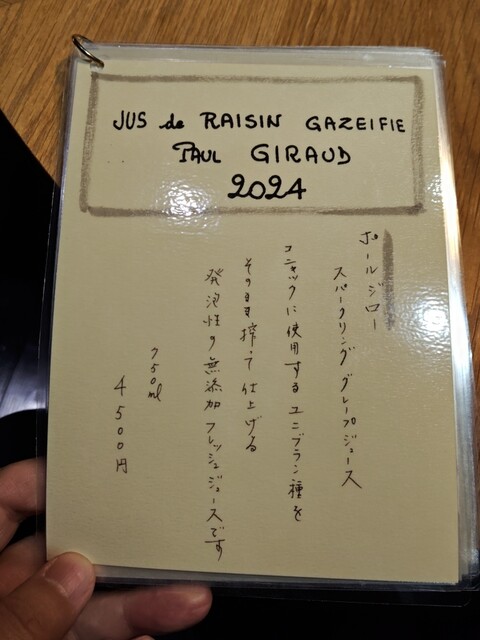 JUS de RAISIN GAZEIFIE
PAUL GIRAUD
2024
ポールジロー
スパークリンググレープジュース
コニャックに使用するユニブラン種を
そのまま搾って仕上げる
発泡性の無添加フレッシュジュースです
750ml
4500円